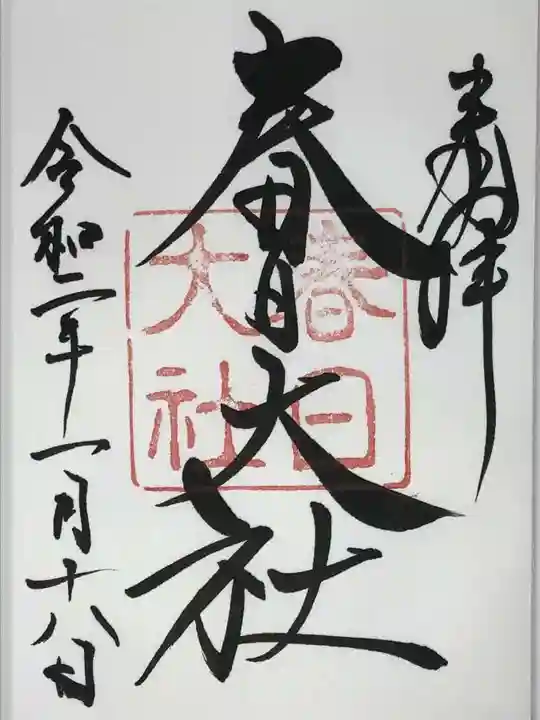 奉拝
春日大社
春日
大社
令和二年十一月十八日